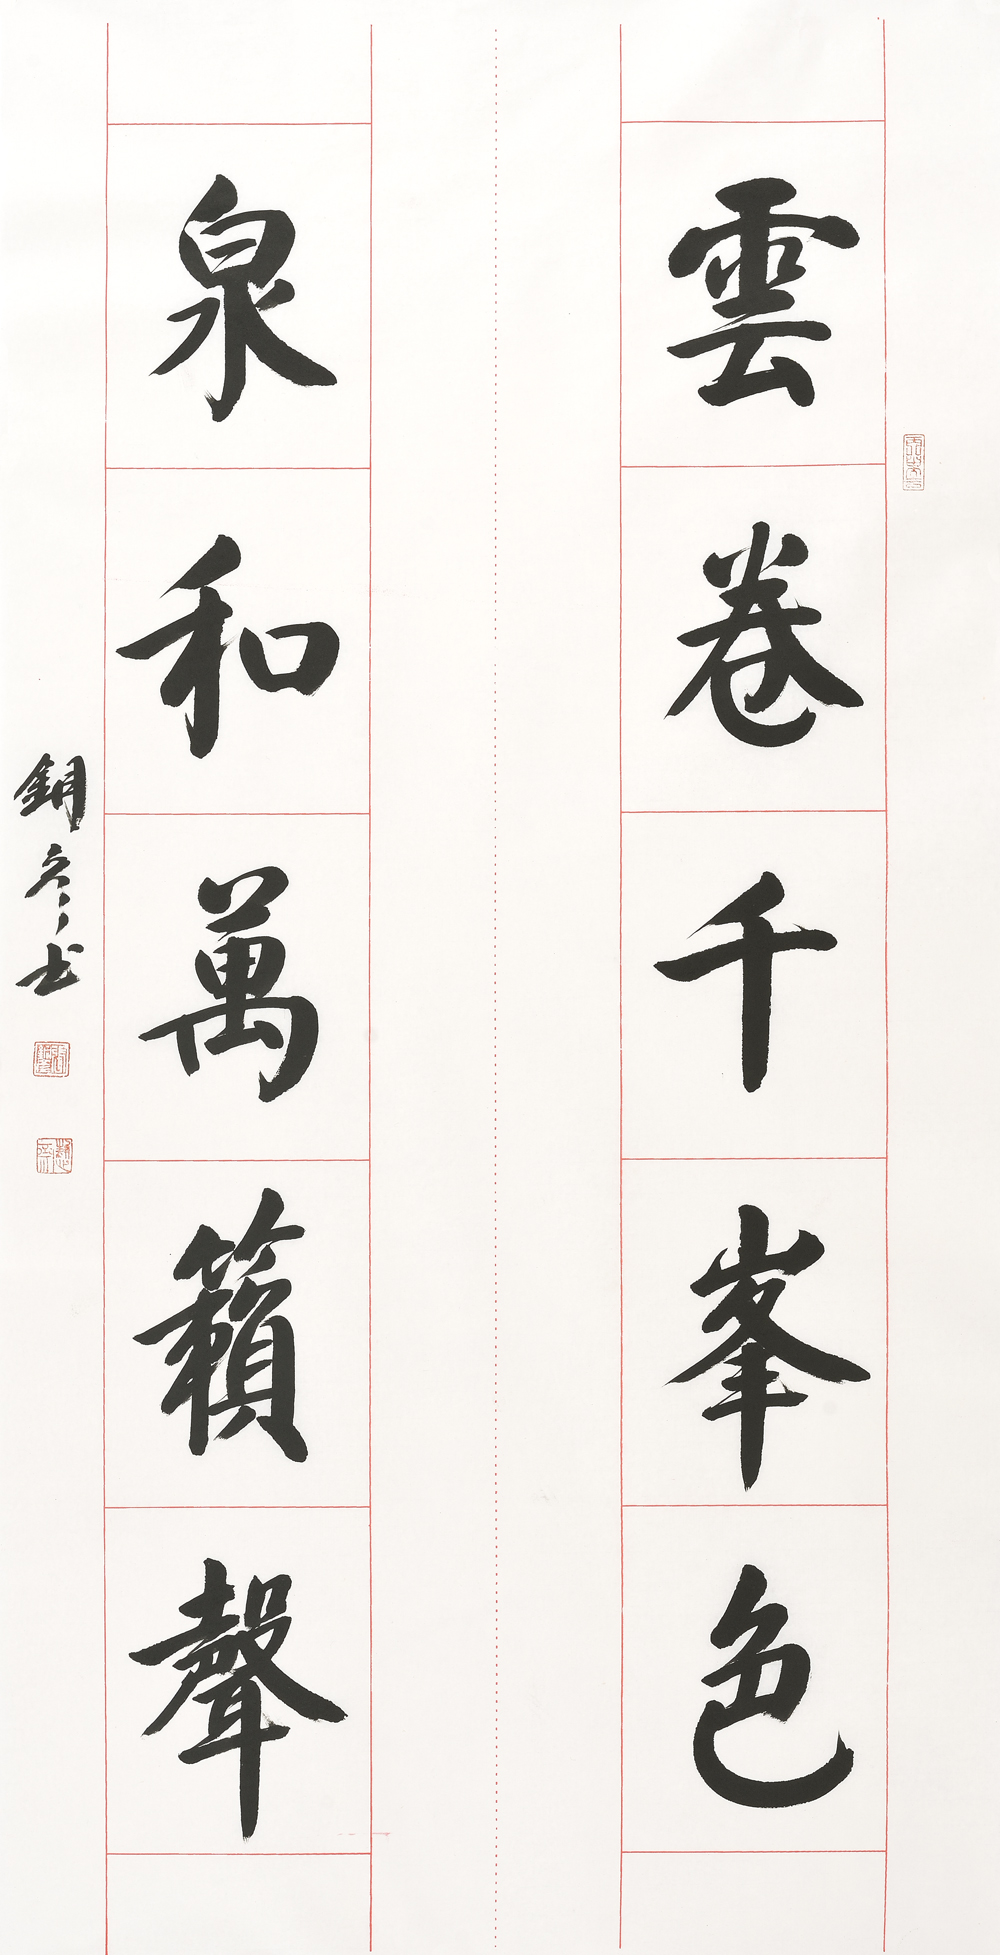 雲卷千峯色
泉和萬籟聲
銅彥书